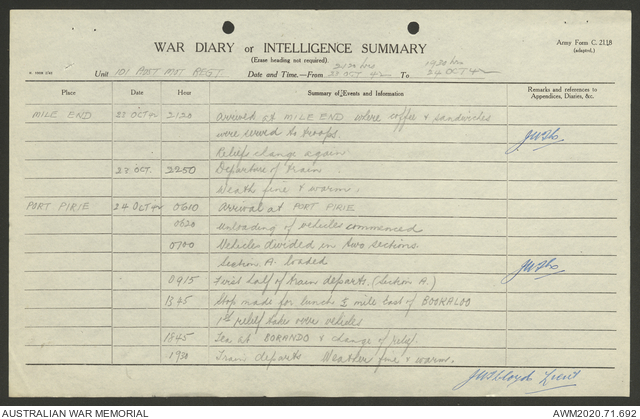 WAR DIARY or INTELLIGENCE SUMMARY
Army Form C. 2118
(adapted.)
(Erase heading not required).
Unit 101 Date and Time.—From 2120 hrs 23 OCT 42 To 1930 hrs 24 OCT 42
Place Date Hour Summary of Events and Information Remarks and references to Appendices, Diaries, &c.
MILE END 23 OCT 42 2120 Arrived at MILE END where coffee & sandwiches
were served to troops.
Reliefs change again
23 OCT. 2250 Departure of train
Weath fine & warm.
PORT PIRIE 24 OCT 42 0610 Arrival at PORT PIRIE
0620 Unloading of vehicles commenced
0700 Vehicles divided in two sections.
Section A. loaded
0915 First half of train departs. (Section A.)
1345 Stop made for lunch 5 mile East of BOOKALOO
1st relief takes over vehicles
1845 Tea at & change of relief.
1930 Train departs Weather fine & warm.
Lieut
AUSTRALIAN WAR MEMORIAL
AWM2020.71.692